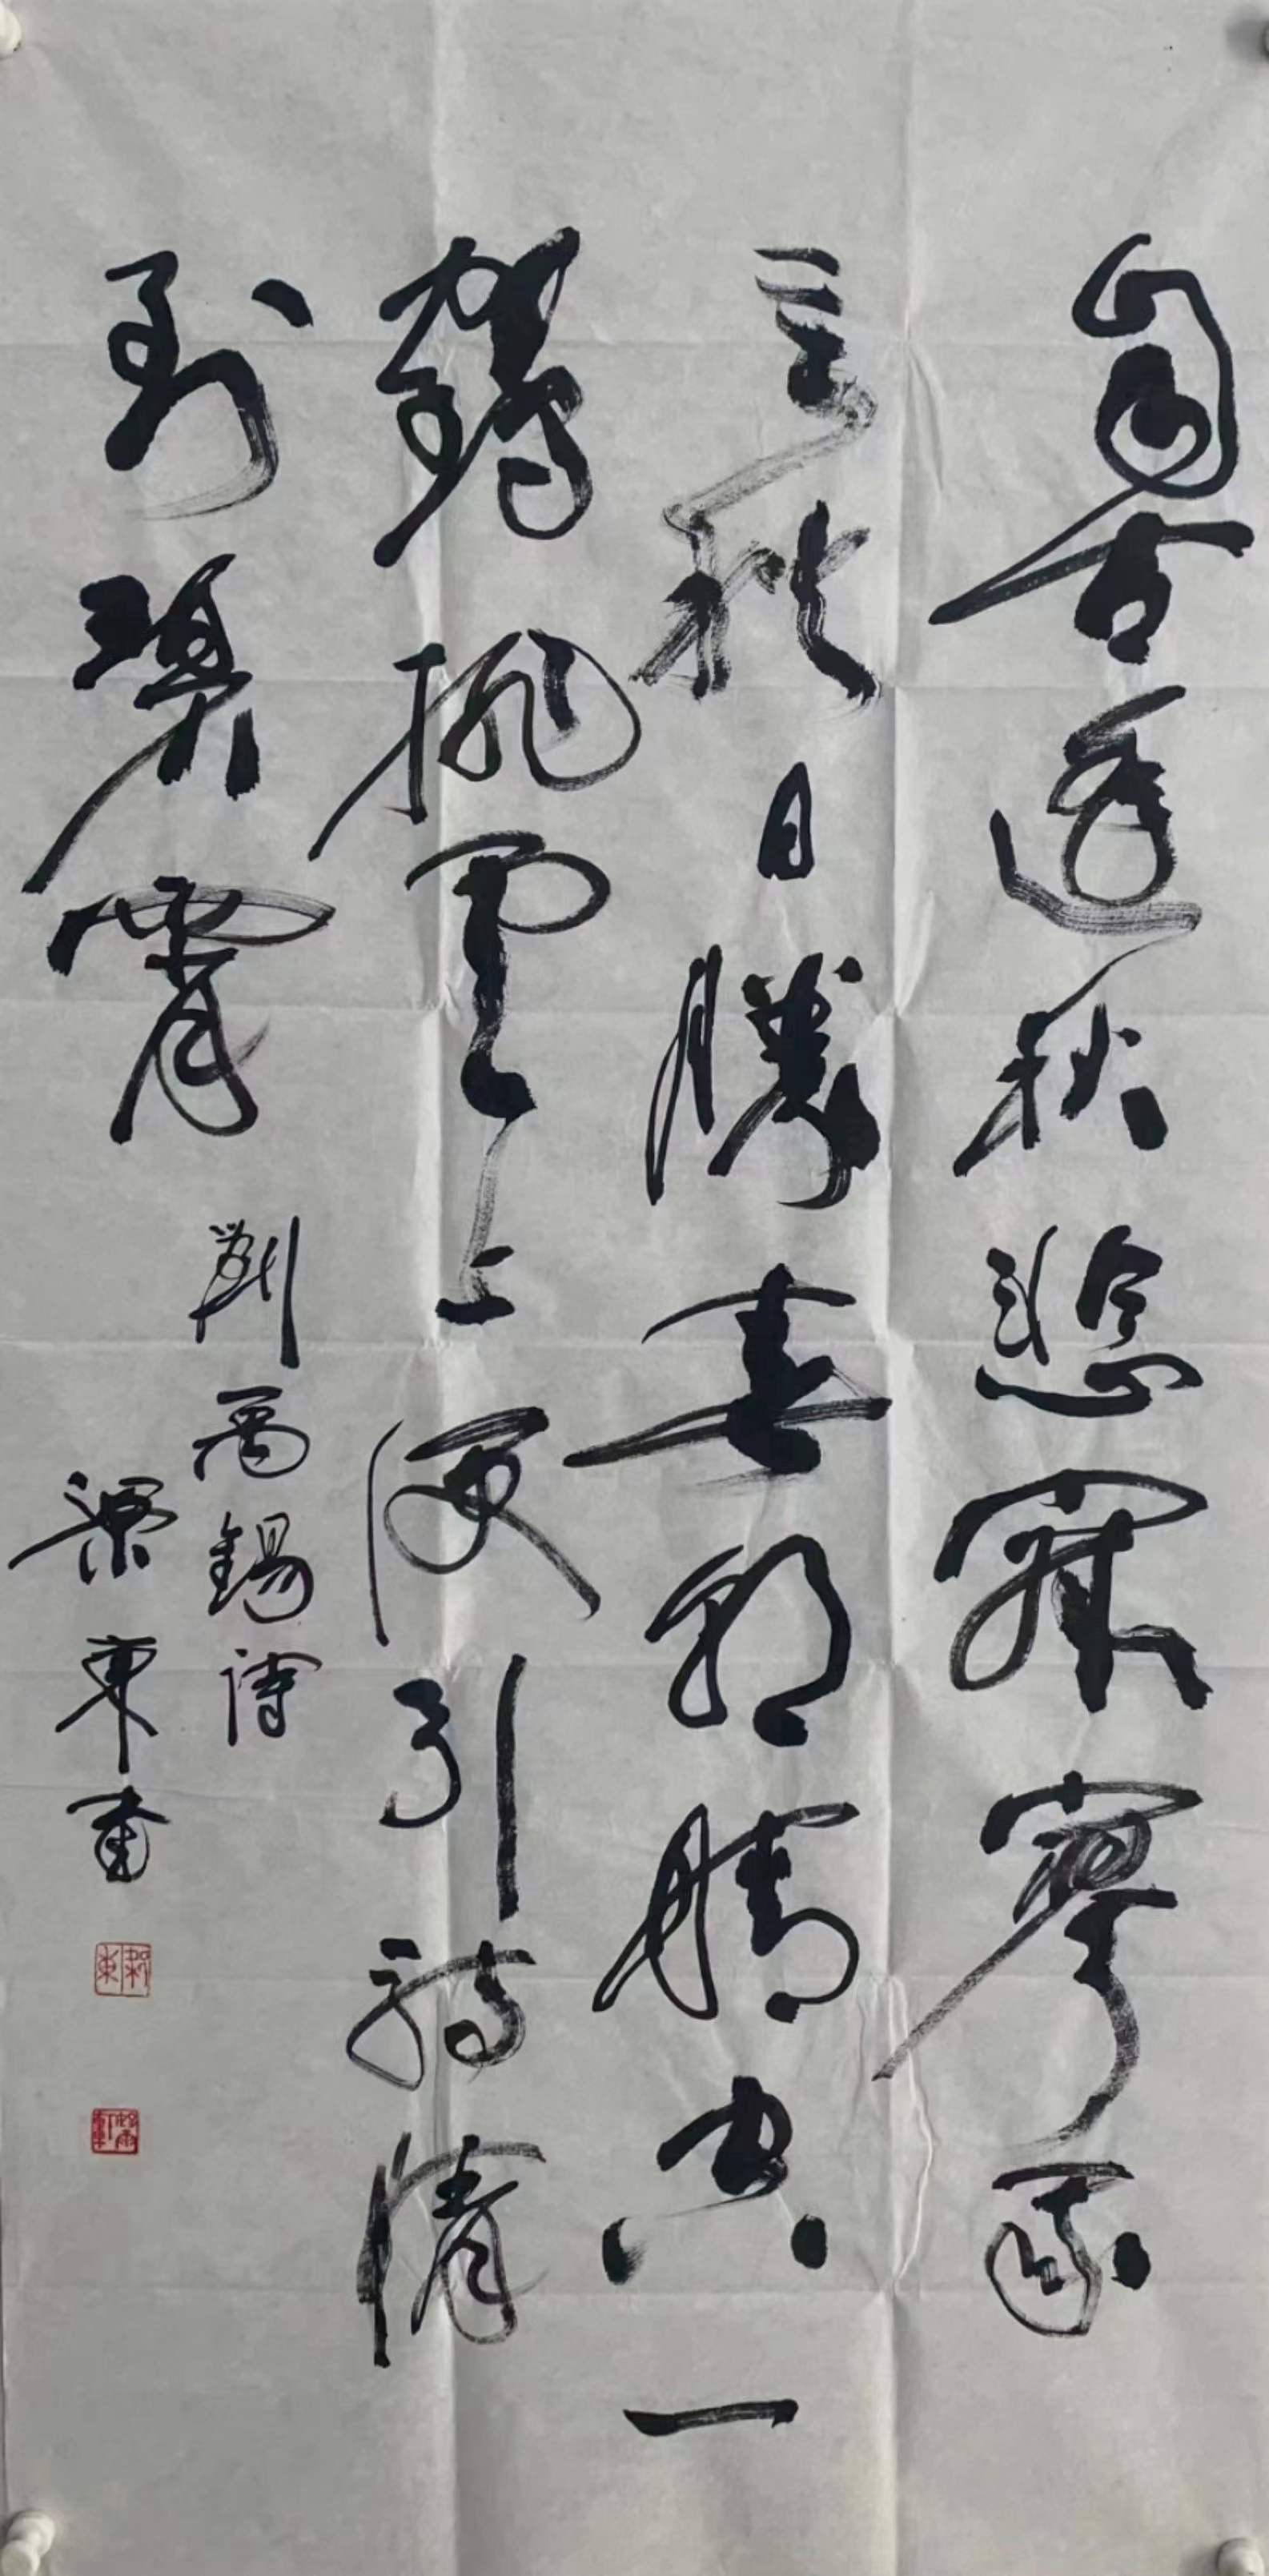 自古逢秋悲寂寥我
言秋日勝春朝晴空一
鶴排雲上便引詩情
到碧霄
劉禹錫詩
梁東書